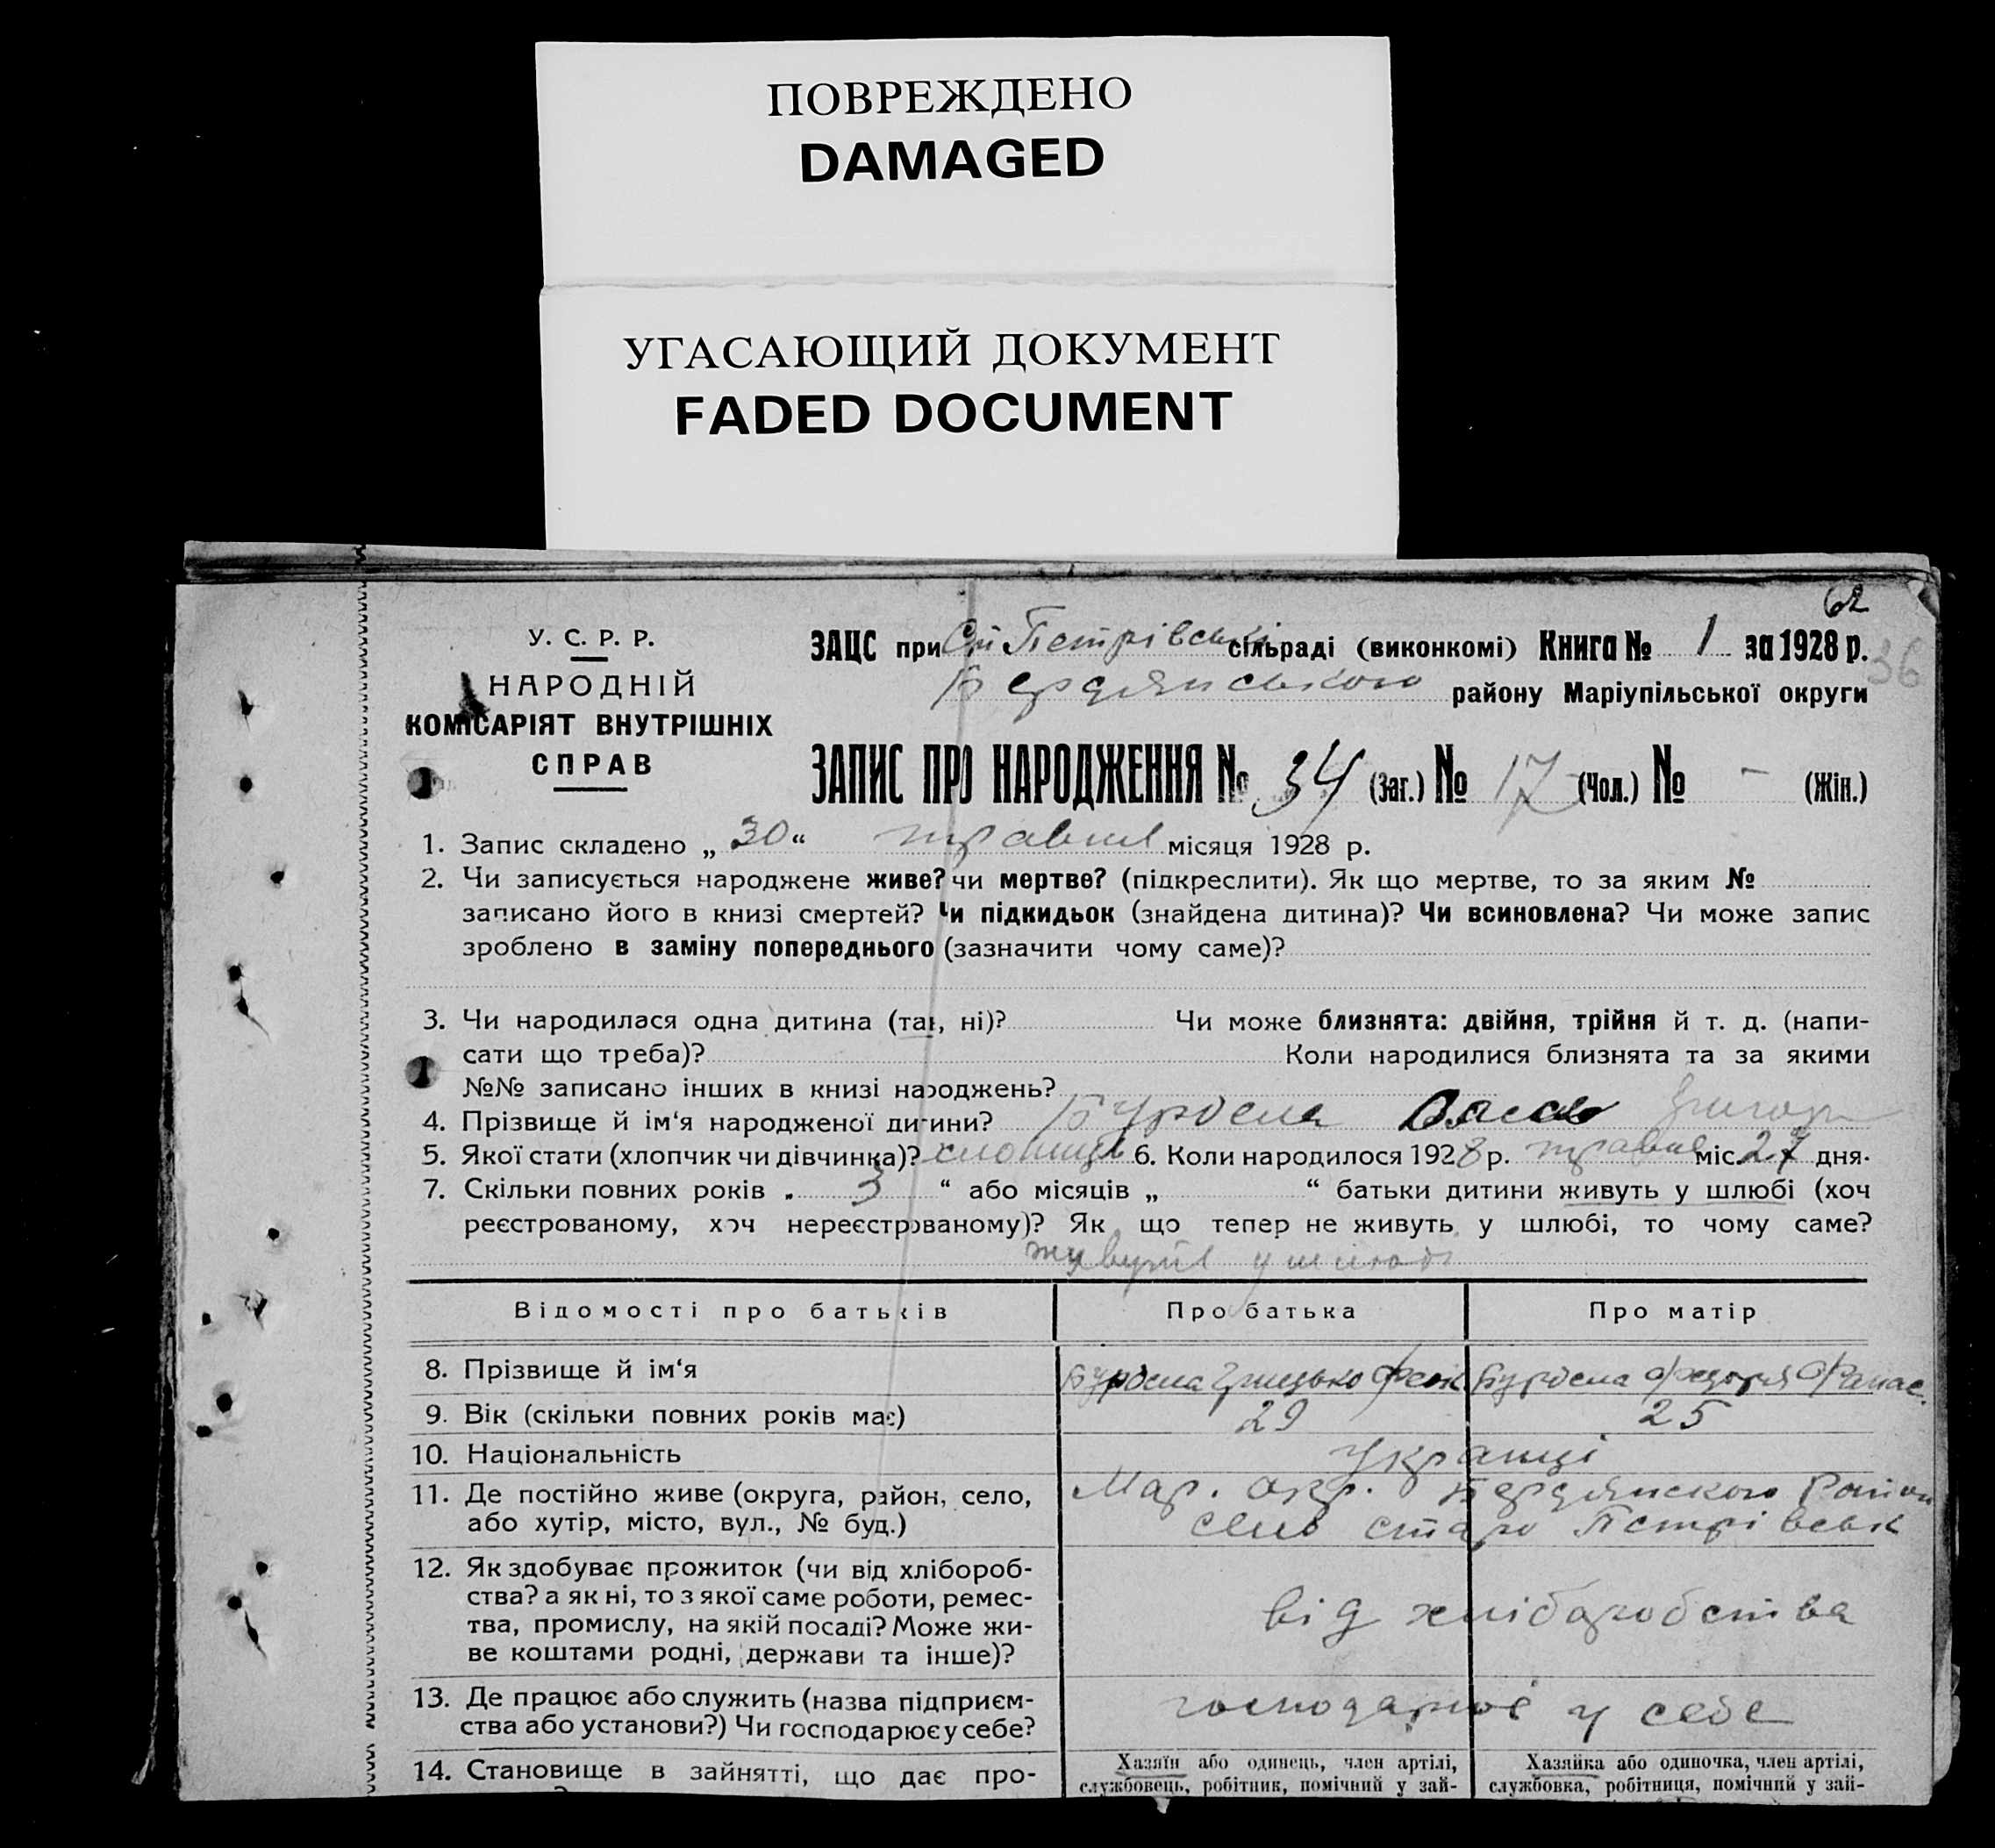 ПОВРЕЖДЕНО
DAMAGED
УГАСАЮЩИЙ ДОКУМЕНТ
FADED DOCUMENT
62
36
У. С. Р. Р.
НАРОДНІЙ
КОМІСАРІЯТ ВНУТРІШНІХ
СПРАВ
ЗАЦС при Ст Петрівські сільраді (виконкомі) Книга № 1 за 1928 р.
Бердянського району Маріупільської округи
ЗАПИС ПРО НАРОДЖЕННЯ № 34 (Заг.) № 17 (Чол.) № - (Жін.)
1. Запис складено „ 30 “ травня місяця 1928 р.
2. Чи записується народжене живе? чи мертве? (підкреслити). Як що мертве, то за яким №
записано його в книзі смертей? Чи підкидьок (знайдена дитина)? Чи всиновлена? Чи може запис
зроблено в заміну попереднього (зазначити чому саме)?
3. Чи народилася одна дитина (так, ні)? Чи може близнята: двійня, трійня й т. д. (напи-
сати що треба)? Коли народилися близнята та за якими
№№ записано інших в книзі народжень?
4. Прізвище й ім‘я народженої дитини? Бурдела
5. Якої стати (хлопчик чи дівчинка)? хлопчик 6. Коли народилося 1928 р. травня міс. 27 дня.
7. Скільки повних років „ 3 “ або місяців „ “ батьки дитини живуть у шлюбі (хоч
реєстрованому, хоч нереєстрованому)? Як що тепер не живуть у шлюбі, то чому саме?
живуть у шлюбі
Відомості про батьків Про батька Про матір
8. Прізвище й ім‘я Бурдела Грицько Бурдела
9. Вік (скільки повних років має) 29 25
10. Національність Українці
11. Де постійно живе (округа, район, село, Мар. окр. Бердянского Район
або хутір, місто, вул., № буд.) село старо Петрівськ
12. Як здобуває прожиток (чи від хлібороб-
ства? а як ні, то з якої саме роботи, ремес-
тва, промислу, на якій посаді? Може жи- від хліборобства
ве коштами родні, держави та інше)?
13. Де працює або служить (назва підприєм- господарює у себе
ства або установи?) Чи господарює у себе?
14. Становище в зайнятті, що дає про- Хазяїн або одинець, член артілі, Хазяйка або одиночка, член артілі,
службовець, робітник, помічний у зай- службовка, робітниця, помічний у зай-